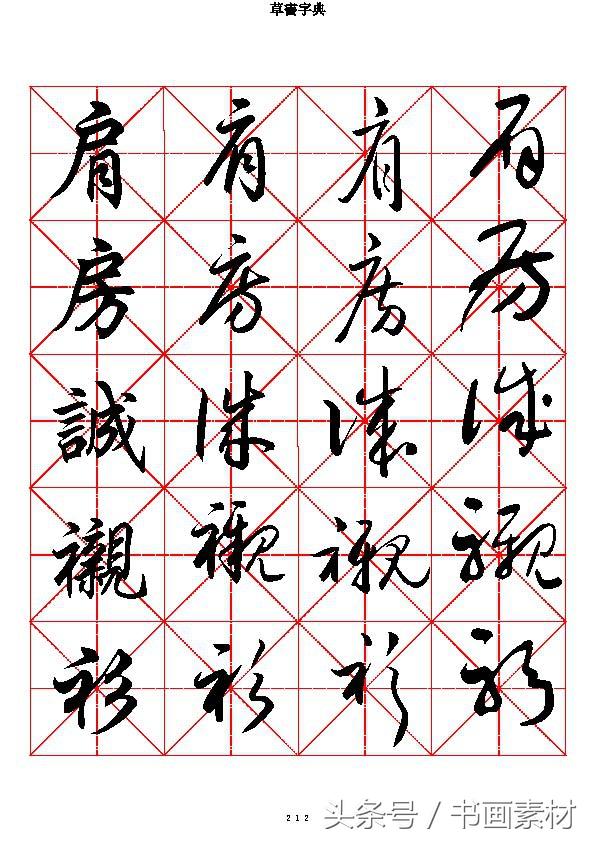 草書字典
肩 肩 肩 肩
房 房 房 房
誠 誠 誠 誠
襯 襯 襯 襯
衫 衫 衫 衫
212
头条号 / 书画素材